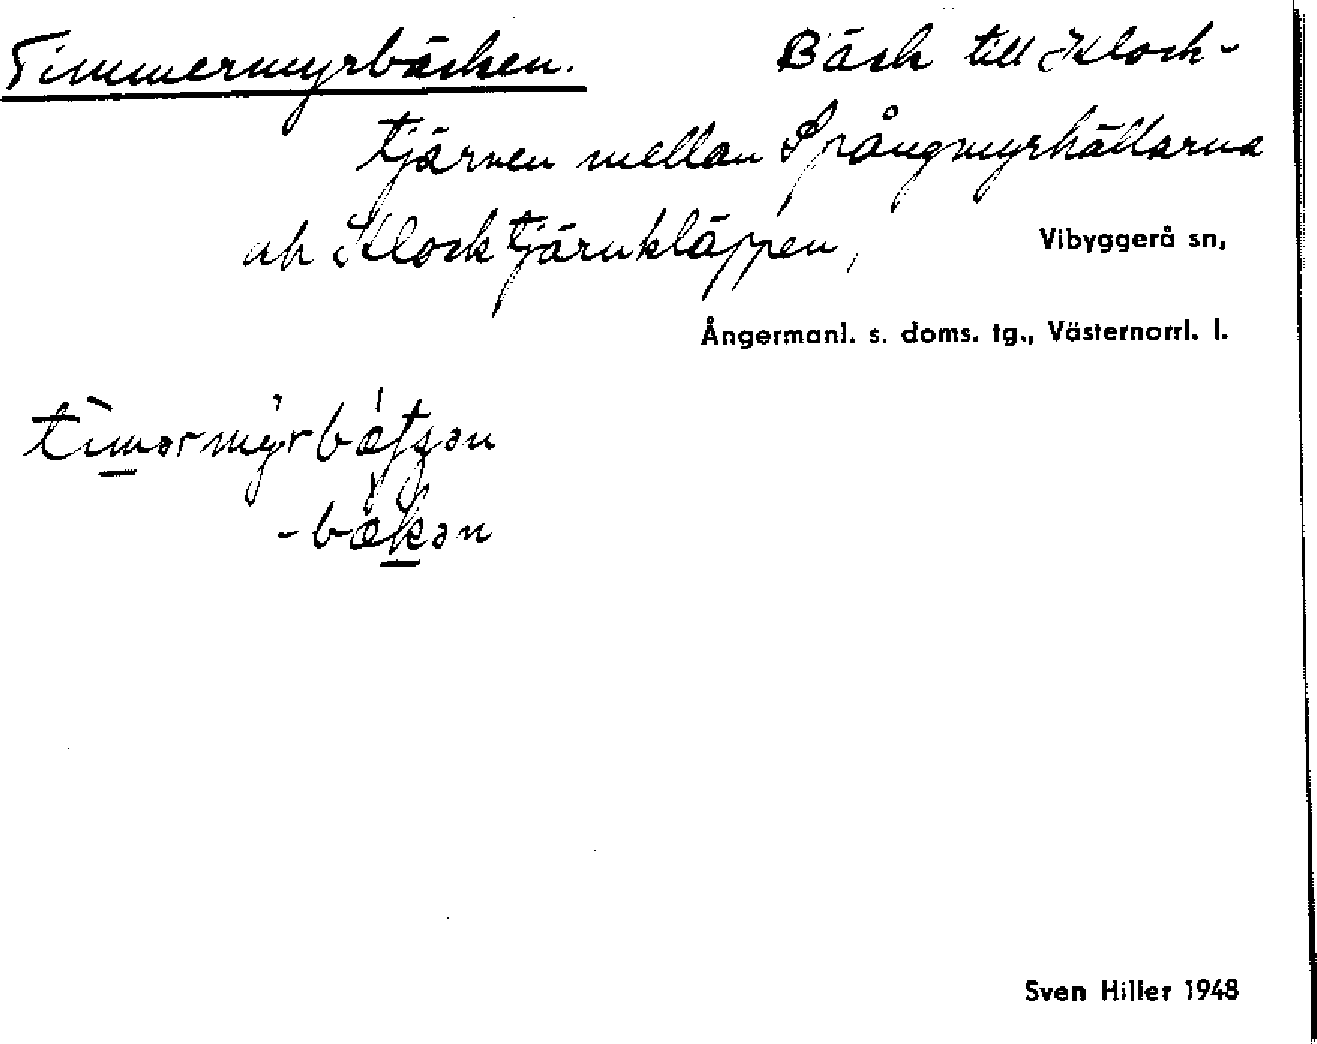 Timmermyrbäcken. Bäck till Klock-
tjärnen mellan Spångmyrhällarna
och Klocktjärnkläppen,
Vibyggerå sn,
Ångermanl. s. doms. tg., Västernorrl. l.
-bäkən
Sven Hiller 1948